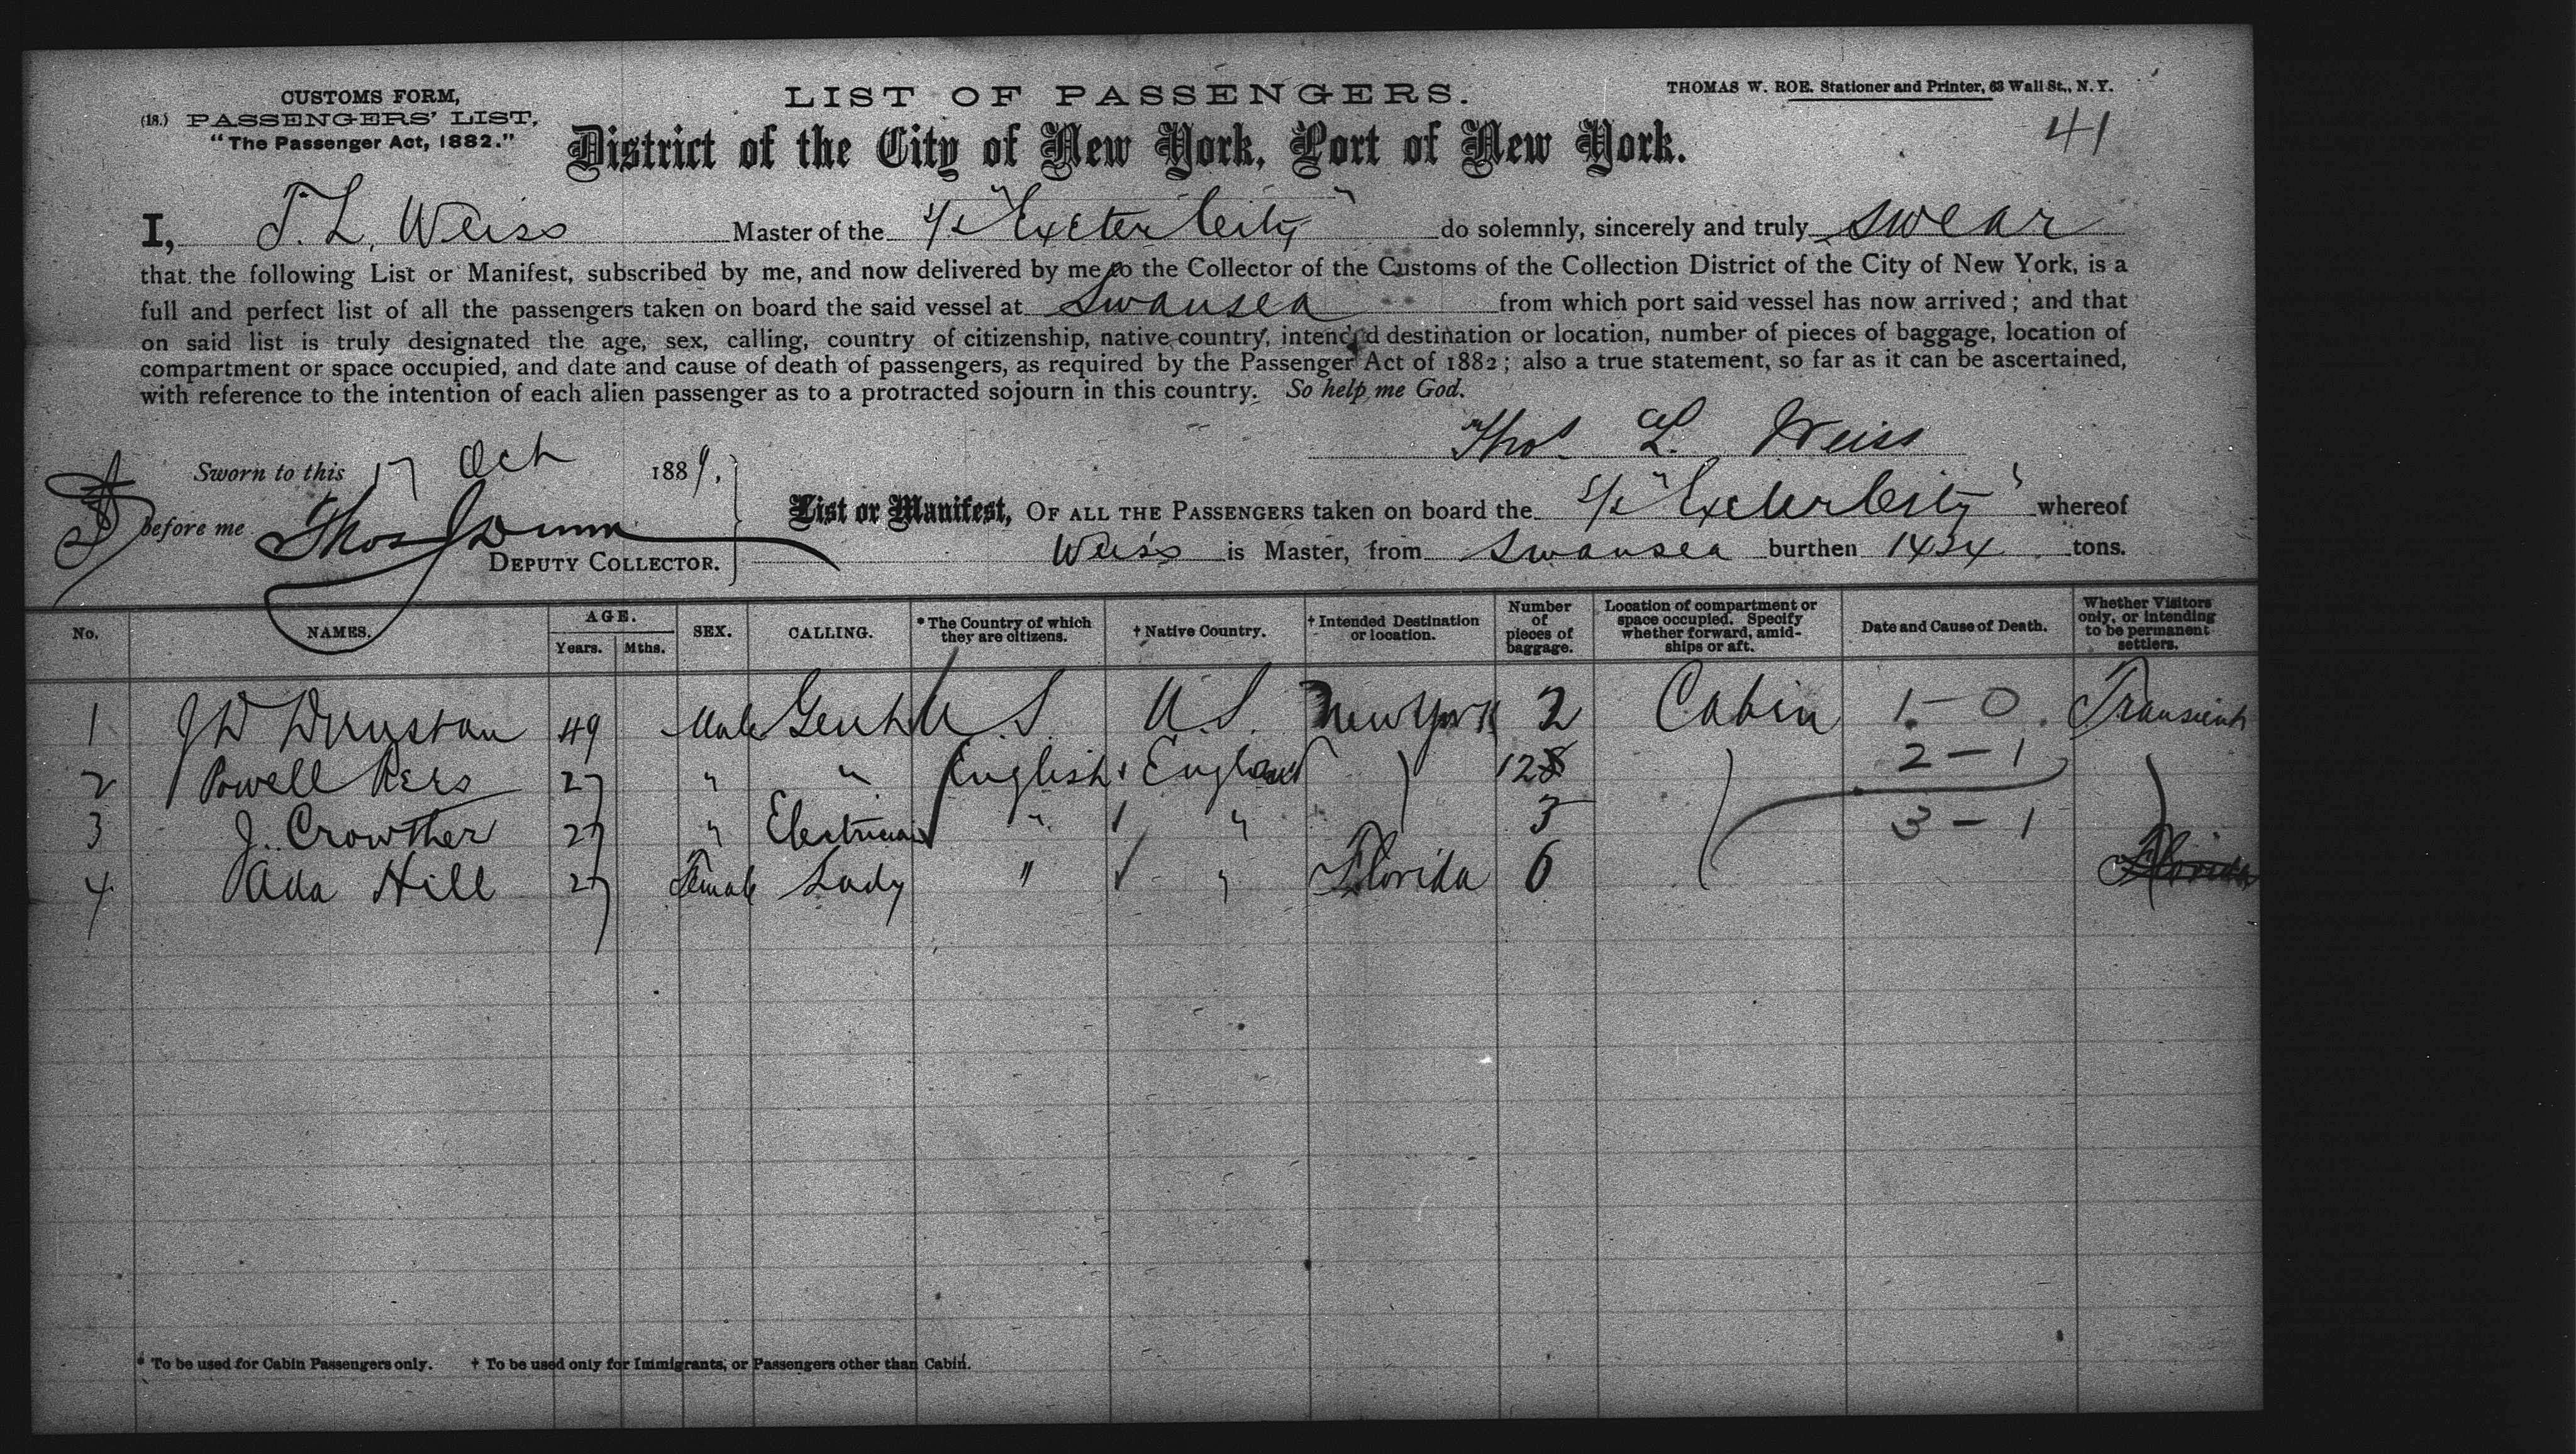 CUSTOMS FORM,
(18.) PASSENGERS' LIST,
"The Passenger Act, 1882."
LIST OF PASSENGERS.
THOMAS W. ROE. Stationer and Printer, 63 Wall St., N. Y.
41
District of the City of New York, Port of New York.
I, T. L. Weiss Master of the s/s "Exeter City" do solemnly, sincerely and truly swear
that the following List or Manifest, subscribed by me, and now delivered by me to the Collector of the Customs of the Collection District of the City of New York, is a
full and perfect list of all the passengers taken on board the said vessel at Swansea from which port said vessel has now arrived; and that
on said list is truly designated the age, sex, calling, country of citizenship, native country, intended destination or location, number of pieces of baggage, location of
compartment or space occupied, and date and cause of death of passengers, as required by the Passenger Act of 1882; also a true statement, so far as it can be ascertained,
with reference to the intention of each alien passenger as to a protracted sojourn in this country. So help me God.
Thos. L. Weiss
Sworn to this 17 Oct 1889.
before me Thos Dunn
DEPUTY COLLECTOR.
List or Manifest, OF ALL THE PASSENGERS taken on board the s/s "Exeter City" whereof
Weiss is Master, from Swansea burthen 1424 tons.
No. NAMES. AGE. Years. Mths. SEX. CALLING. * The Country of which they are citizens. † Native Country. † Intended Destination or location. Number of pieces of baggage. Location of compartment or space occupied. Specify whether forward, amidships or aft. Date and Cause of Death. Whether Visitors only, or intending to be permanent settlers.
1 J W Dunstan 49 Male Gent U.S. U.S. New York 2 Cabin 1-0 Transient
2 Powell Rees 27 " " English England 12 2-1
3 J. Crowther 27 " Electrician " " 3 3-1
4 Ada Hill 27 Female Lady " " Florida 6 Florida
* To be used for Cabin Passengers only. † To be used only for Immigrants, or Passengers other than Cabin.